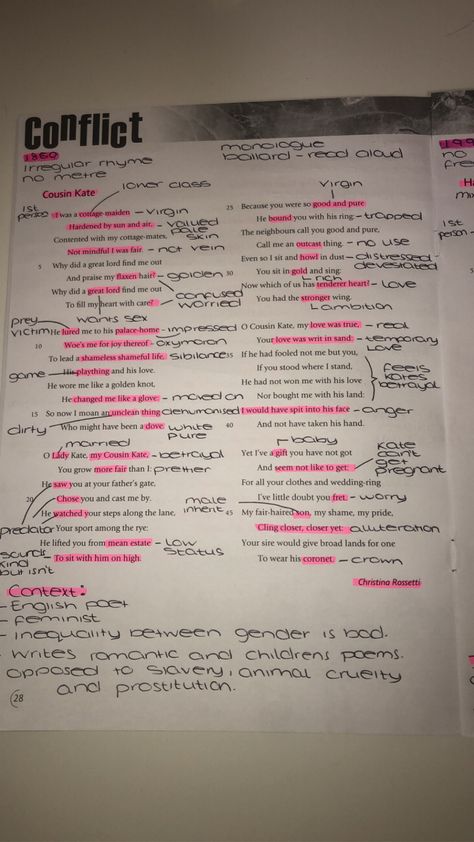 Conflict
1860
irregular rhyme
no metre
monologue
ballard - read aloud
199
no
fre
Cousin Kate
lower class
Virgin
1st person
I was a cottage-maiden - virgin
Hardened by sun and air, - valued pale skin
Contented with my cottage-mates,
Not mindful I was fair. - not vein
5 Why did a great lord find me out
And praise my flaxen hair? - golden
Why did a great lord find me out
To fill my heart with care? confused worried
wants sex
prey victim
He lured me to his palace-home - impressed
10 Woe's me for joy thereof - oxymoron
To lead a shameless shameful life, sibilance
game His plaything and his love.
He wore me like a golden knot,
He changed me like a glove: - moved on
15 So now I moan an unclean thing dehumanised
dirty
Who might have been a dove. white pure
married
O Lady Kate, my Cousin Kate, - betrayal
You grow more fair than I: prettier
He saw you at your father's gate,
20 Chose you and cast me by.
He watched your steps along the lane,
predator
Your sport among the rye:
He lifted you from mean estate - low status
To sit with him on high.
sounds kind but isn't
25 Because you were so good and pure
He bound you with his ring: - trapped
The neighbours call you good and pure,
Call me an outcast thing. - no use
Even so I sit and howl in dust - distressed - devestated
30 You sit in gold and sing: rich
Now which of us has tenderer heart? - Love
You had the stronger wing.
ambition
O Cousin Kate, my love was true, - real
Your love was writ in sand: - temporary love
35 If he had fooled not me but you,
If you stood where I stand,
He had not won me with his love
Nor bought me with his land:
feels Kates betrayal
I would have spit into his face - anger
40 And not have taken his hand.
baby
Yet I've a gift you have not got
And seem not like to get:
Kate can't get pregnant
For all your clothes and wedding-ring
I've little doubt you fret. - worry
male inherit
45 My fair-haired son, my shame, my pride,
Cling closer, closer yet: alliteration
Your sire would give broad lands for one
To wear his coronet. - crown
Christina Rossetti
Context:
- English poet
- feminist
- inequality between gender is bad.
- writes romantic and childrens poems.
opposed to slavery, animal cruelty
and prostitution.
28